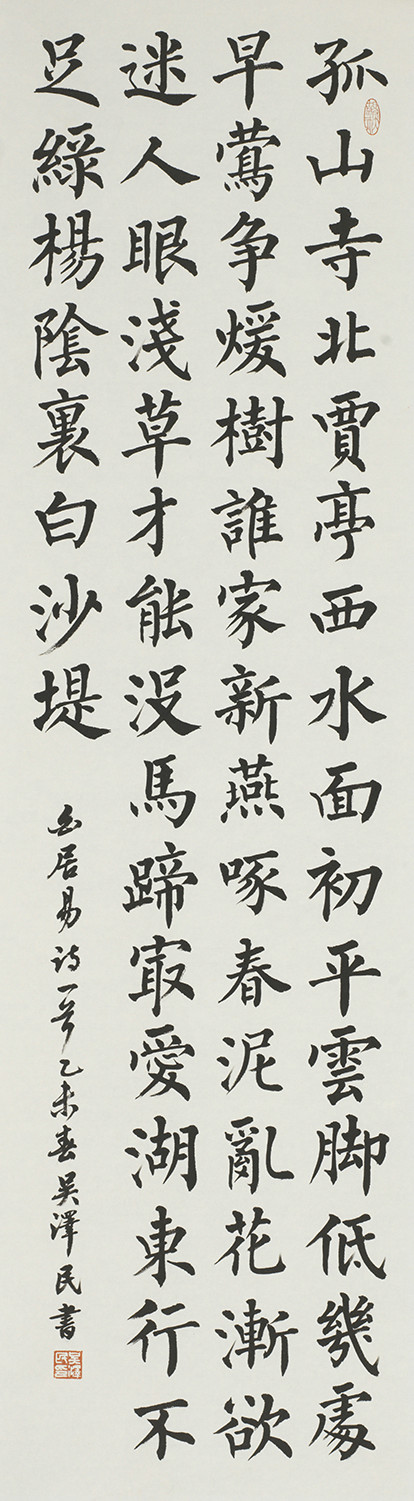 孤山寺北賈亭西水面初平雲脚低幾處
早鶯争煖樹誰家新燕啄春泥亂花漸欲
迷人眼淺草才能没馬蹄㝡愛湖東行不
足綠楊隂裏白沙堤
白居易詩一首乙未春吴澤民書